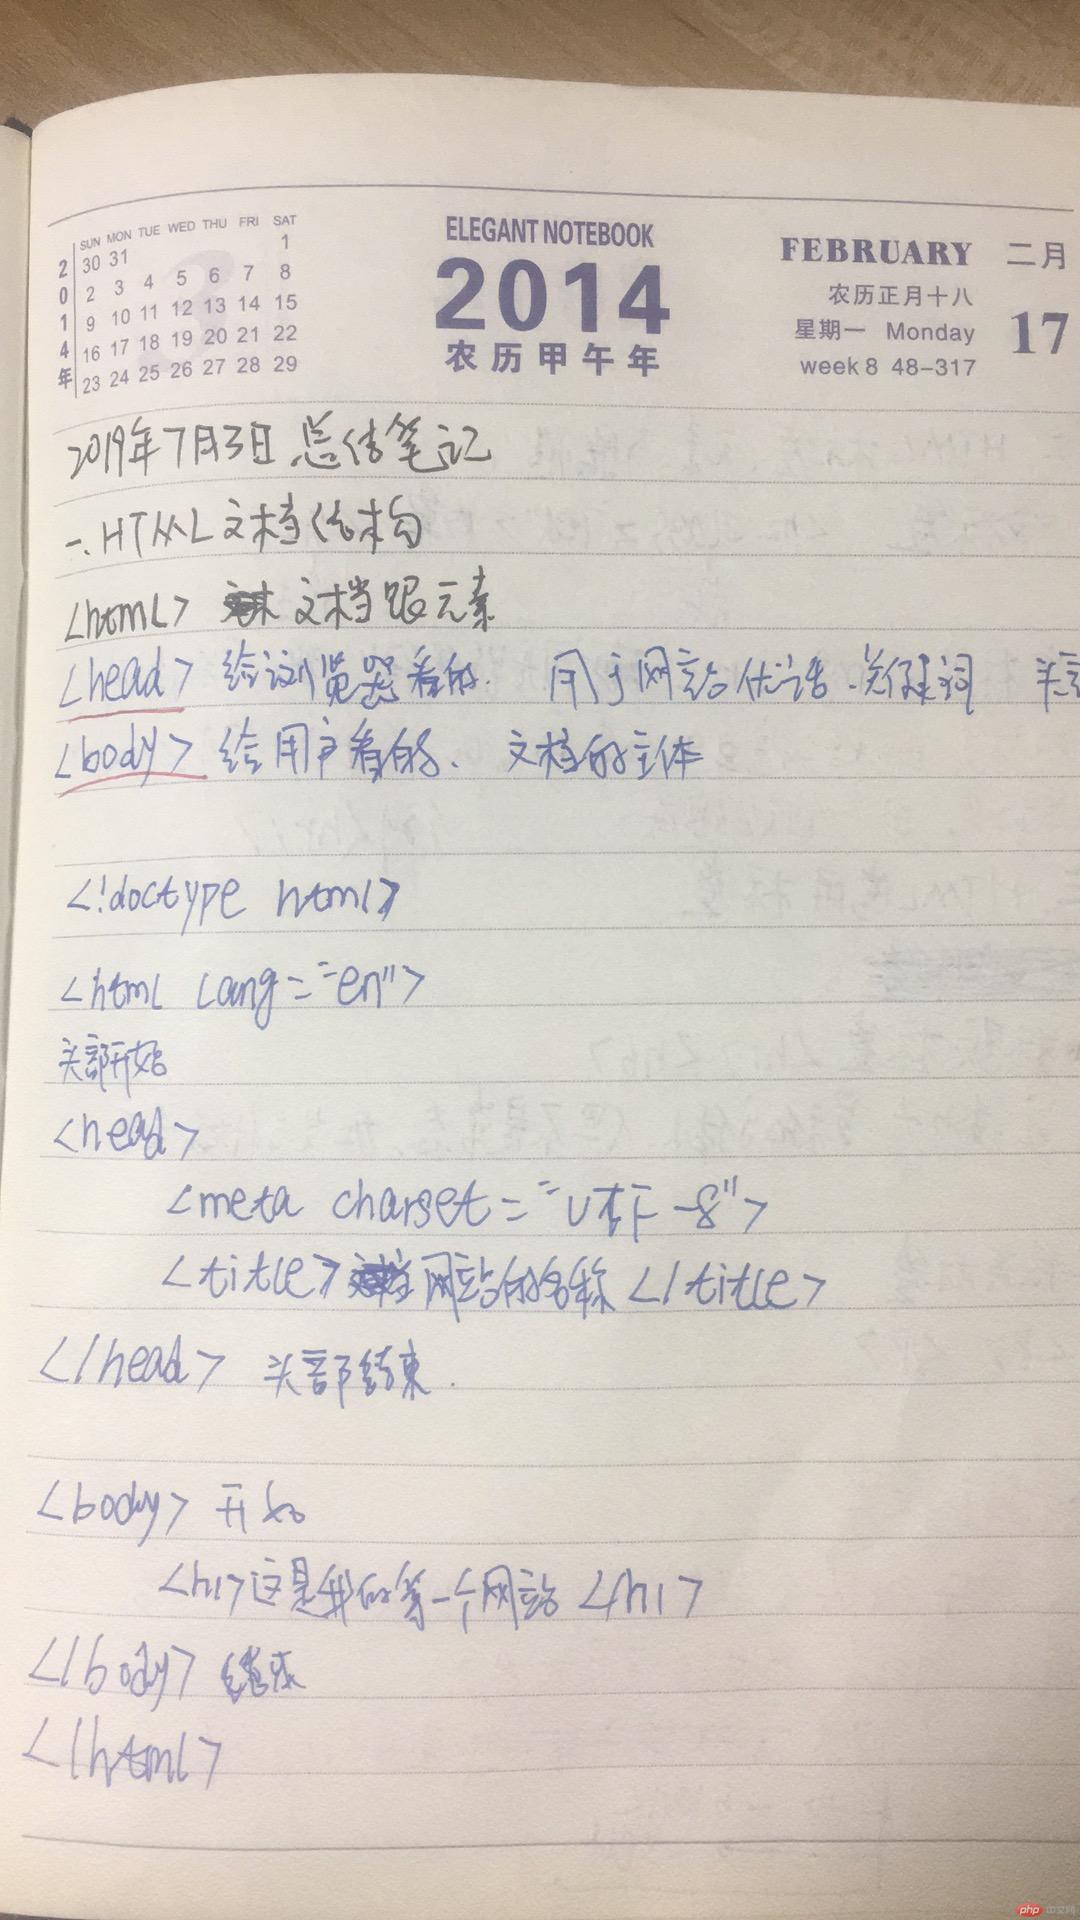 SUN MON TUE WED THU FRI SAT
30 31 1
2 3 4 5 6 7 8
9 10 11 12 13 14 15
16 17 18 19 20 21 22
23 24 25 26 27 28 29
2014年
ELEGANT NOTEBOOK
2014
农历甲午年
FEBRUARY 二月
农历正月十八
星期一 Monday
week 8 48-317
17
2019年7月3日 总结笔记
一、HTML文档结构
<html> 文档跟元素
<head> 给浏览器看的. 用于网站优话、关键词
<body> 给用户看的、 文档的主体
<!doctype html>
<html lang="en">
头部开始
<head>
<meta charset="utf-8">
<title>网站的名称</title>
</head> 头部结束.
<body> 开始
<h1>这是我的第一个网站</h1>
</body> 结束
</html>
php 中文网